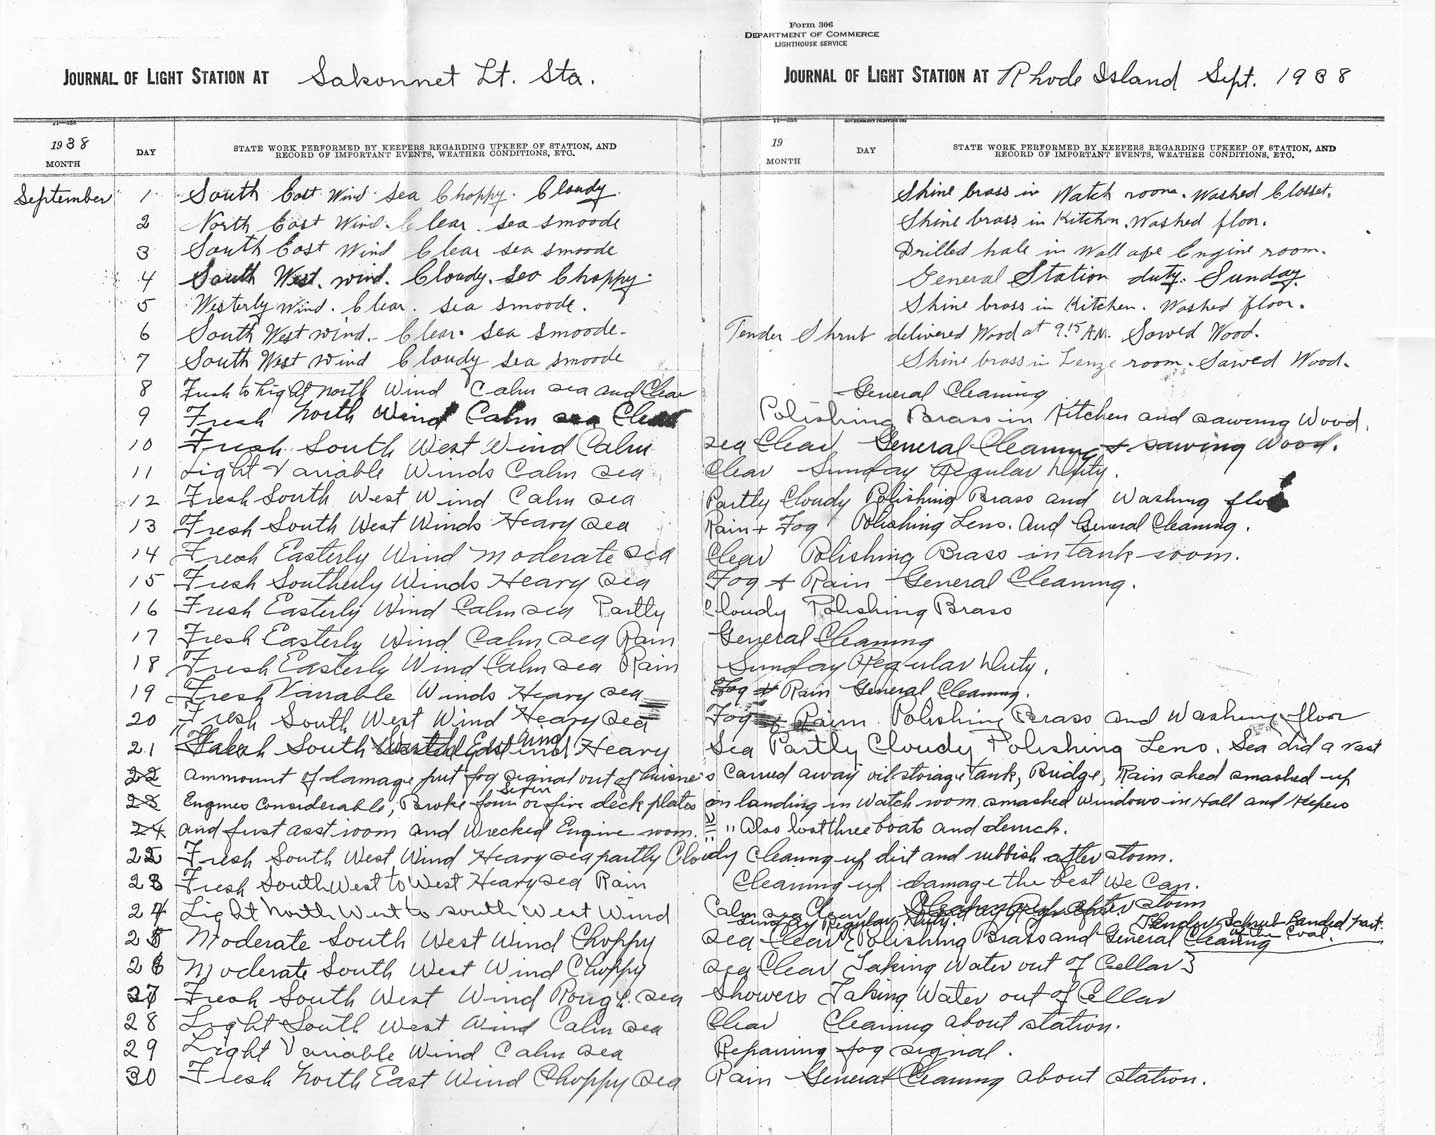 Form 306
DEPARTMENT OF COMMERCE
LIGHTHOUSE SERVICE
JOURNAL OF LIGHT STATION AT Sakonnet Lt. Sta. JOURNAL OF LIGHT STATION AT Rhode Island Sept. 1938
1938 MONTH DAY STATE WORK PERFORMED BY KEEPERS REGARDING UPKEEP OF STATION, AND RECORD OF IMPORTANT EVENTS, WEATHER CONDITIONS, ETC. 19 MONTH DAY STATE WORK PERFORMED BY KEEPERS REGARDING UPKEEP OF STATION, AND RECORD OF IMPORTANT EVENTS, WEATHER CONDITIONS, ETC.
September 1 South East Wind. sea Choppy. Cloudy. Shine brass in Watch room. Washed Closset.
2 North East Wind. Clear. sea smoode Shine brass in Kitchen. Washed floor.
3 South East Wind Clear sea smoode Drilled hale in Wall Engine room.
4 South West. wind. Cloudy. sea Choppy. General Station duty. Sunday.
5 Westerly Wind. Clear. sea smoode. Shine brass in Kitchen. Washed floor.
6 South West wind. Clear. sea smoode. Tender Shrub delivered Wood at 9.15 A.M. Sawed Wood.
7 South West Wind Cloudy sea smoode Shine brass in Lenze room. Sawed Wood.
8 Fresh to light North Wind Calm sea and Clear General Cleaning
9 Fresh North Wind Calm sea Clear Polishing Brass in Kitchen and sawing Wood.
10 Fresh South West Wind Calm sea Clear General Cleaning + sawing Wood.
11 Light Variable Winds Calm sea Clear Sunday Regular Duty.
12 Fresh South West Wind Calm sea Partly Cloudy Polishing Brass and Washing floor
13 Fresh South West Winds Heavy sea Rain + Fog Polishing Lens. And General Cleaning.
14 Fresh Easterly Wind Moderate sea Clear Polishing Brass in tank room.
15 Fresh Southerly Winds Heavy sea Fog + Rain General Cleaning.
16 Fresh Easterly Wind Calm sea Partly Cloudy Polishing Brass
17 Fresh Easterly Wind Calm sea Rain General Cleaning
18 Fresh Easterly Wind Calm sea Rain Sunday Regular Duty.
19 Fresh Variable Winds Heavy sea Fog + Rain General Cleaning.
20 Fresh South West Wind Heavy sea Fog + Rain. Polishing Brass and Washing floor
21 South East Wind Heavy Sea Partly Cloudy Polishing Lens. Sea did a vast
22 ammount of damage put fog signal out of Carried away oil storage tank, Bridge, Rain shed smashed up
23 Engines considerable, Broke four or five deck plates on landing in Watch room smashed windows in Hall and Keepers
24 and first asst room and Wrecked Engine room. " Also lost three boats and derrick.
22 Fresh South West Wind Heavy sea partly Cloudy Cleaning up dirt and rubbish after storm.
23 Fresh South West to West Heavy sea Rain Cleaning up damage the best We Can.
24 Light North West to south West Wind Calm sea Clear after storm
25 Moderate South West Wind Choppy sea Clear Sunday Regular Duty. Polishing Brass and General Cleaning Tender Shrub Landed part of the Coal.
26 Moderate South West Wind Choppy sea Clear Taking Water out of Cellar
27 Fresh South West Wind Rough sea Showers Taking Water out of Cellar
28 Light South West Wind Calm sea Clear Cleaning about station.
29 Light Variable Wind Calm sea Repairing fog signal.
30 Fresh North East Wind Choppy sea Rain General Cleaning about station.